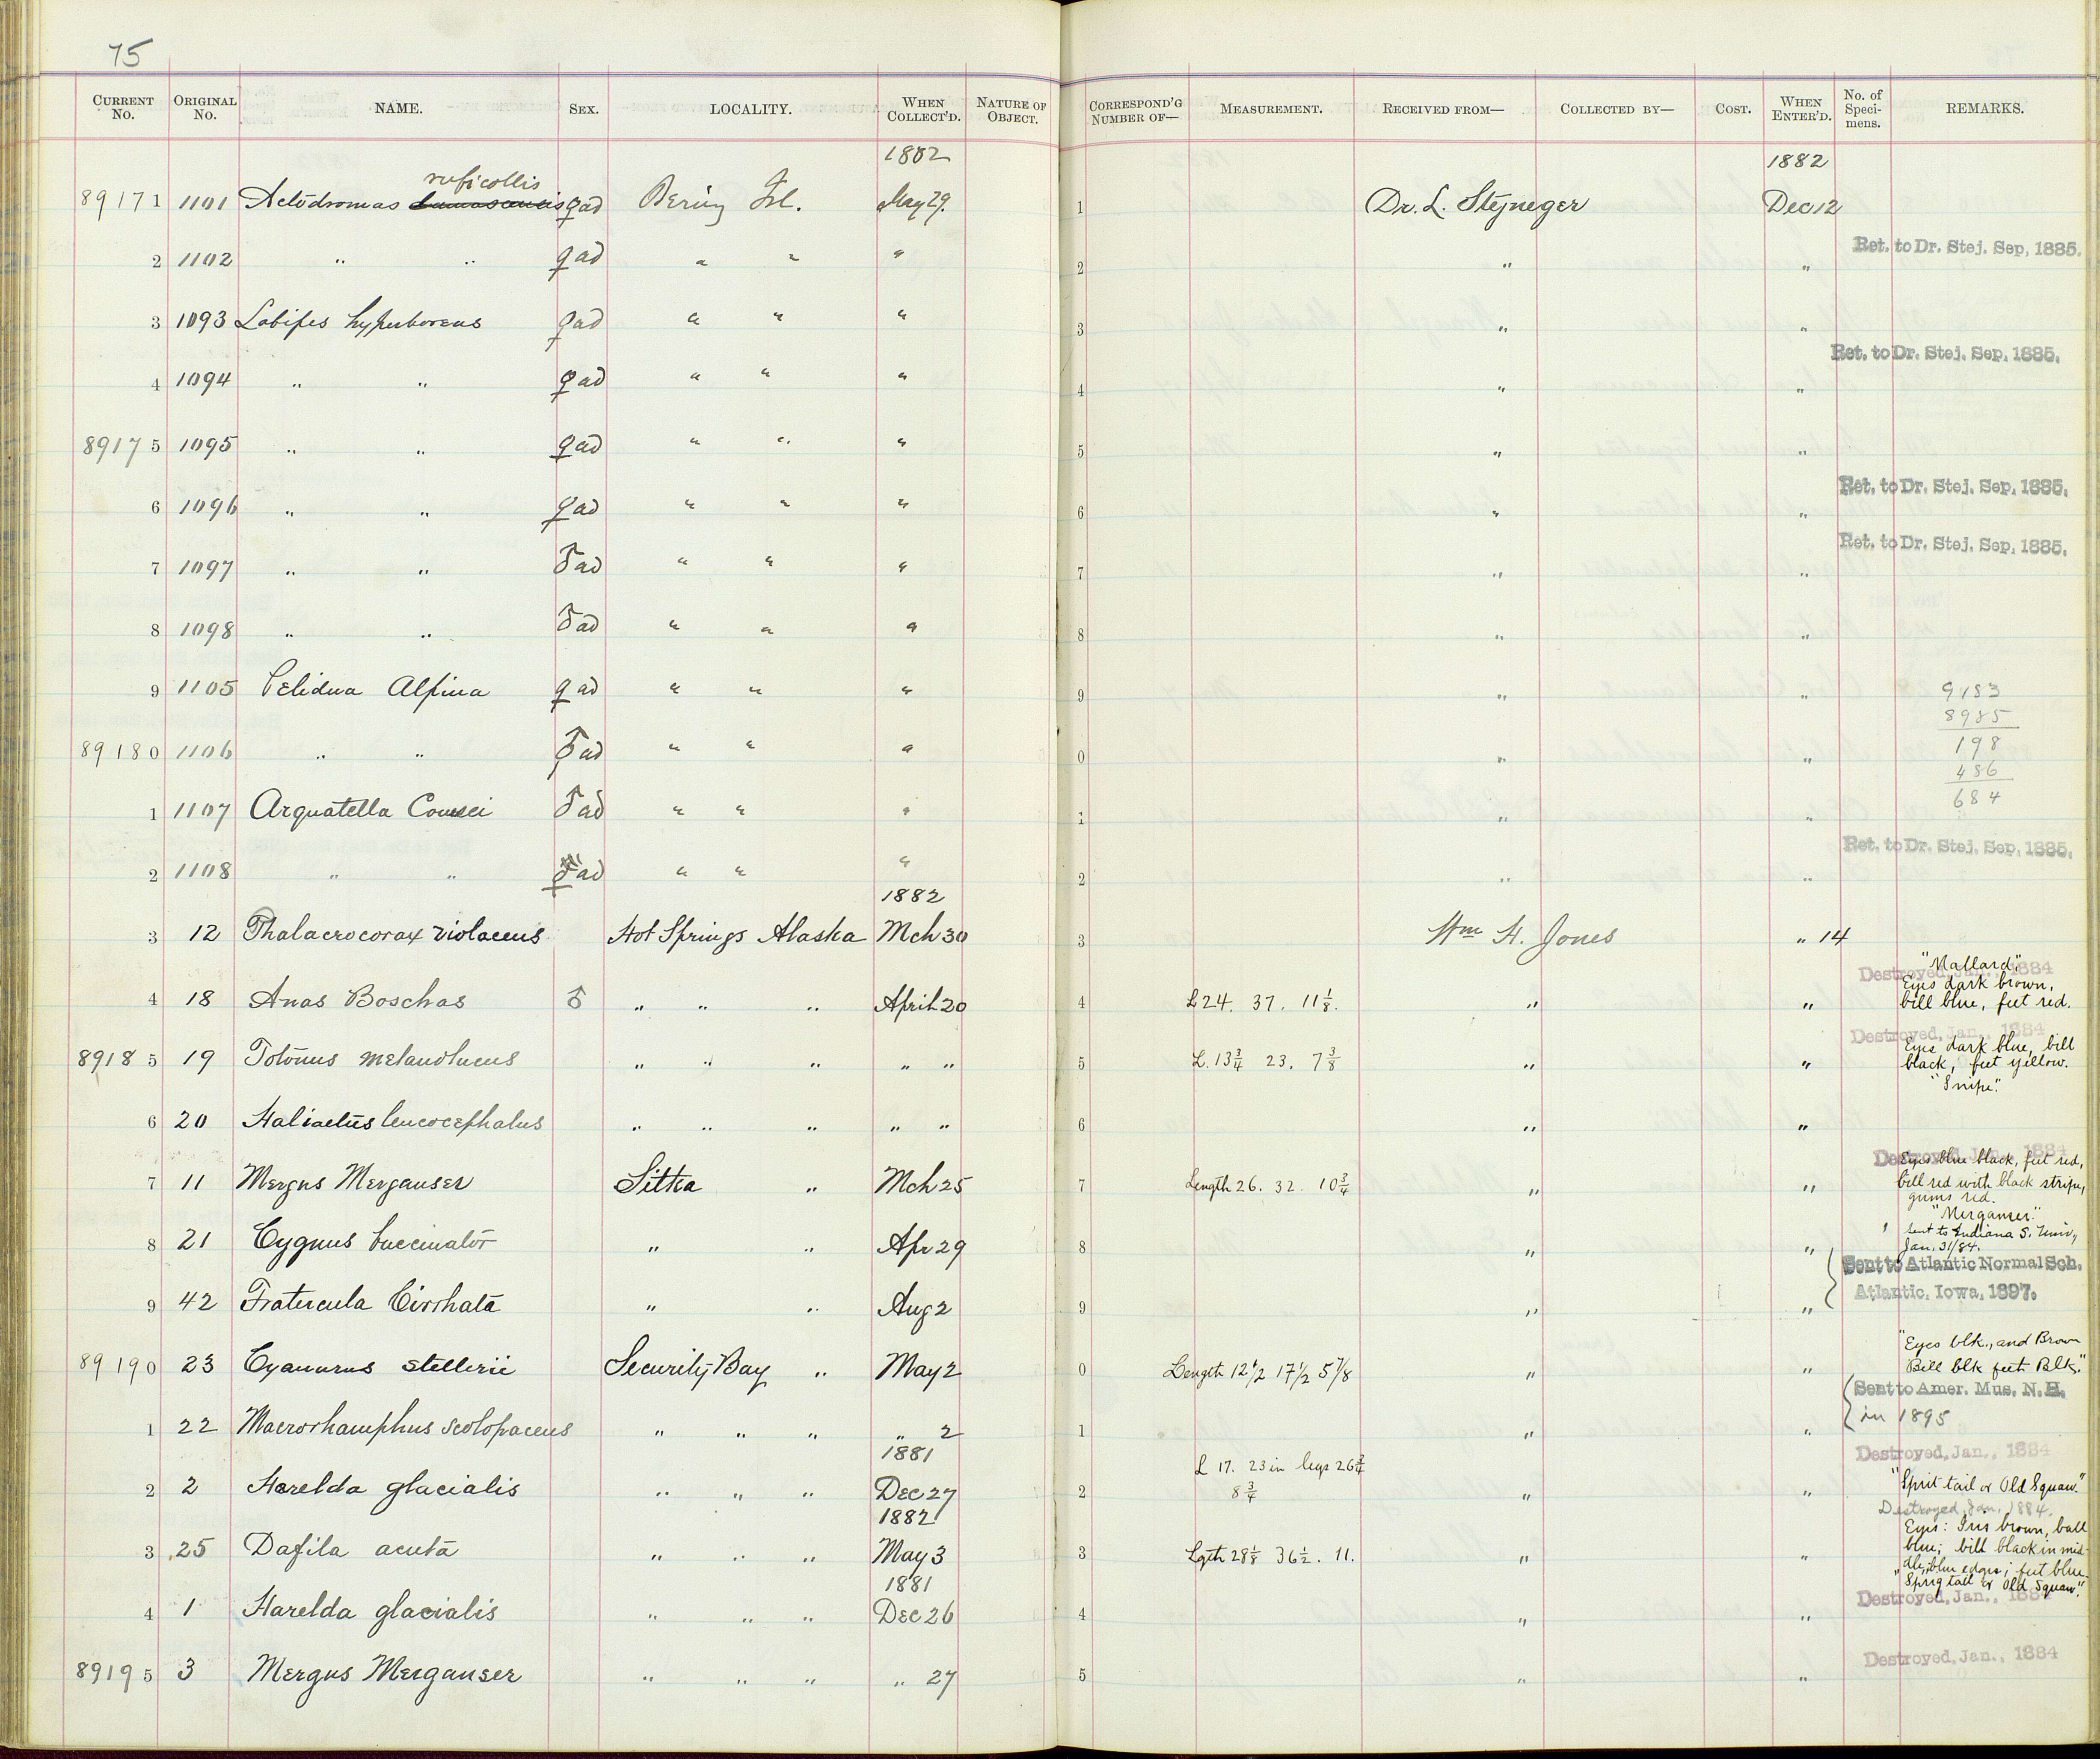 75
CURRENT No. ORIGINAL No. NAME. SEX. LOCALITY. WHEN COLLECT'D. NATURE OF OBJECT. CORRESPOND'G NUMBER OF— MEASUREMENT. RECEIVED FROM— COLLECTED BY— COST. WHEN ENTER'D. No. of Speci-mens. REMARKS.
1882 1882
ruficollis
89171 1101 Actodromas damascensis ♀ad Bering Isl. May 29. 1 Dr. L. Stejneger Dec 12
2 1102 " " ♀ad " " " 2 " " Ret. to Dr. Stej. Sep. 1885.
3 1093 Lobipes hyperboreus ♀ad " " " 3 " "
4 1094 " " ♀ad " " " 4 " " Ret. to Dr. Stej. Sep. 1885.
89175 1095 " " ♀ad " " " 5 " "
6 1096 " " ♀ad " " " 6 " " Ret. to Dr. Stej. Sep. 1885.
7 1097 " " ♂ad " " " 7 " " Ret. to Dr. Stej. Sep. 1885.
8 1098 " " ♂ad " " " 8 " "
9 1105 Pelidna Alpina ♀ad " " " 9 " " 9183
8985
89180 1106 " " ♂ad " " " 0 " " 198
486
1 1107 Arquatella Couesi ♂ad " " " 1 " " 684
2 1108 " " ad " " " 2 " " Ret. to Dr. Stej. Sep. 1885.
1882
3 12 Phalacrocorax violaceus Hot Springs Alaska Mch 30 3 Wm H. Jones " 14
4 18 Anas Boschas ♂ " " " April 20 4 L 24. 37. 11 1/8. " " Destroyed, Jan., 1884 "Mallard",
Eyes dark brown,
bill blue, feet red.
89185 19 Totanus melanolucus " " " " " 5 L. 13 3/4 23. 7 3/8 " " Destroyed, Jan., 1884
Eyes dark blue, bill
black, feet yellow.
"Snipe".
6 20 Haliaetus leucocephalus " " " " " 6 " "
7 11 Mergus Merganser Sitka " Mch 25 7 Length 26. 32. 10 3/4 " " Destroyed, Jan., 1884
Eyes blue black, feet red,
bill red with black stripe,
gums red.
"Merganser".
8 21 Cygnus buccinator " " Apr 29 8 " " Sent to Indiana S. Univ,
Jan. 31/84.
9 42 Fratercula Cirrhata " " Aug 2 9 " " Sent to Atlantic Normal Sch.
Atlantic, Iowa, 1897.
89190 23 Cyanurus stellerii Security Bay " May 2 0 Length 12 1/2 17 1/2 5 7/8 " " "Eyes blk., and Brown
Bill blk feet Blk."
1 22 Macrorhamphus scolopaceus " " " " 2 1 " " Sent to Amer. Mus. N. H.
in 1895
1881
2 2 Harelda glacialis " " " Dec 27 2 L 17. 23 in legs 26 3/4
8 3/4 " " Destroyed, Jan., 1884
"Sprit tail or Old Squaw."
1882
3 25 Dafila acuta " " " May 3 3 Lgth 28 1/8 36 1/2. 11. " " Destroyed, Jan. 1884.
Eyes: Iris brown, ball
blue; bill black in mid-
dle, blue edges; feet blue.
1881
4 1 Harelda glacialis " " " Dec 26 4 " " "Sprig tail or Old Squaw".
Destroyed, Jan., 1884
89195 3 Mergus Merganser " " " " 27 5 " " Destroyed, Jan., 1884